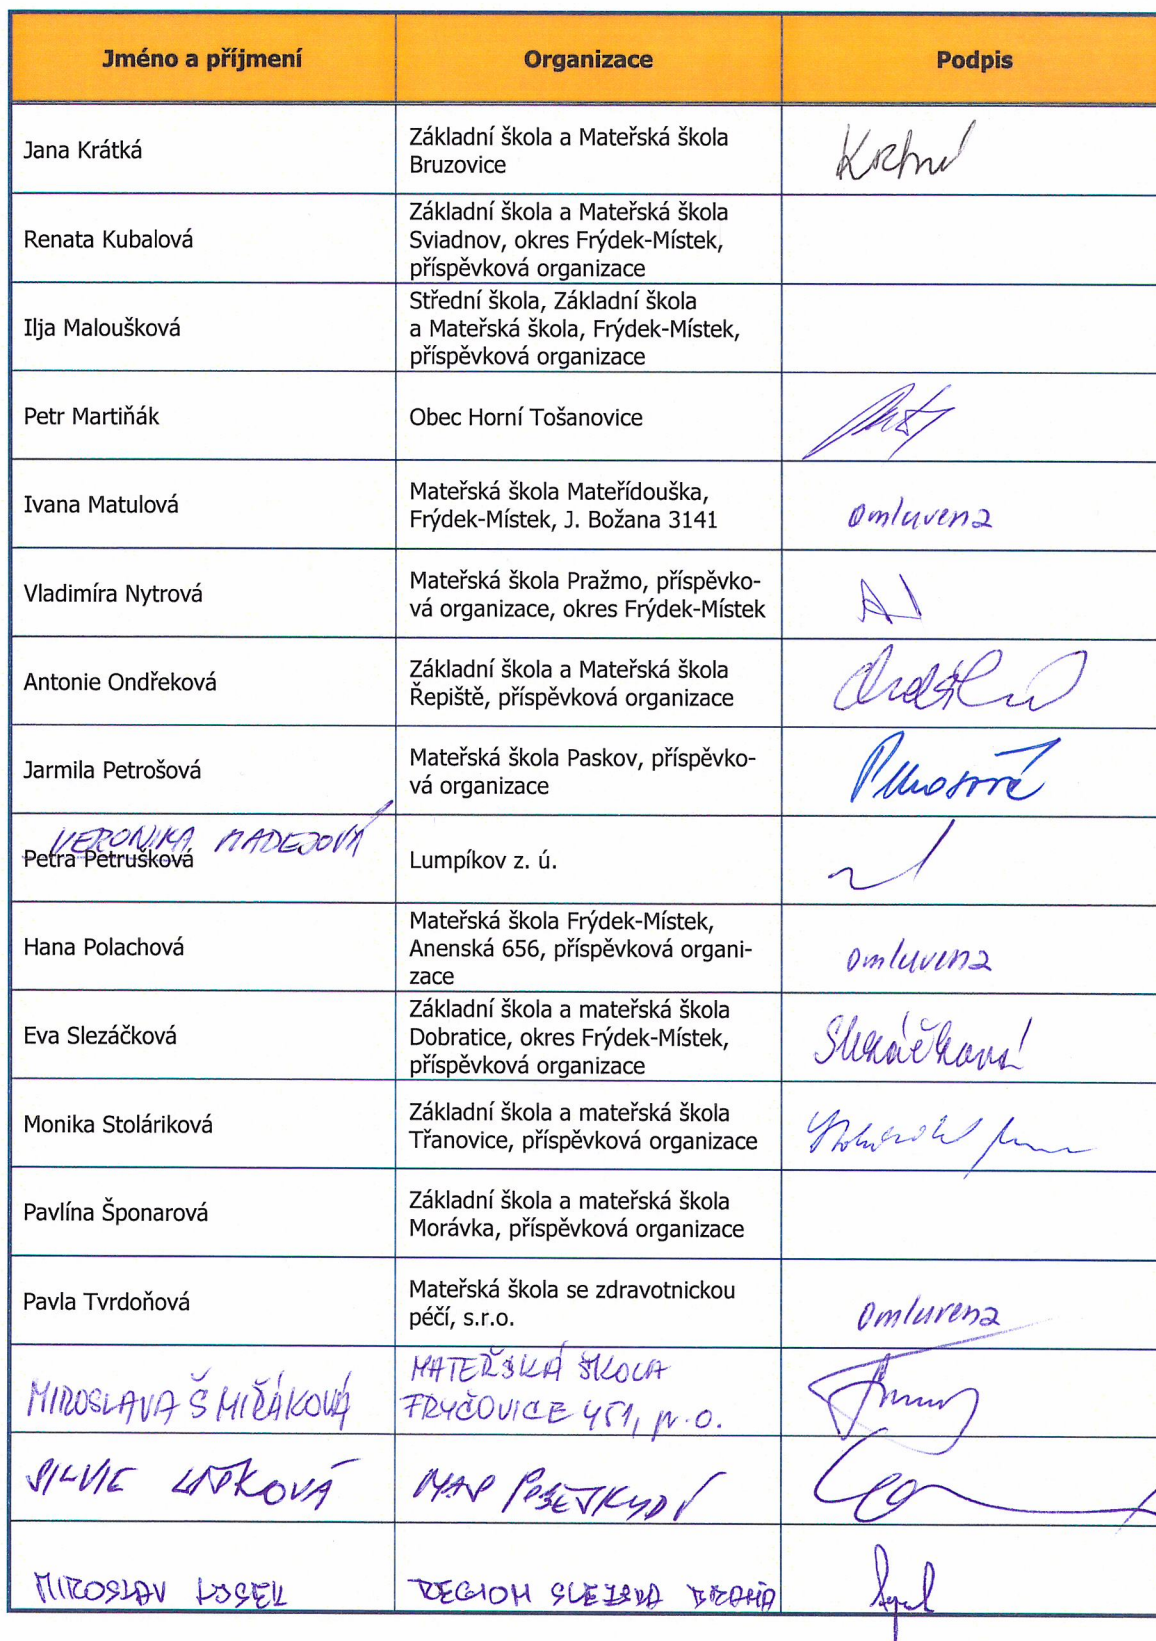 Jméno a příjmení Organizace Podpis
Jana Krátká
Základní škola a Mateřská škola
Bruzovice
Renata Kubalová
Základní škola a Mateřská škola
Sviadnov, okres Frýdek-Místek,
příspěvková organizace
Ilja Maloušková
Střední škola, Základní škola
a Mateřská škola, Frýdek-Místek,
příspěvková organizace
Petr Martiňák
Obec Horní Tošanovice
Ivana Matulová
Mateřská škola Mateřídouška,
Frýdek-Místek, J. Božana 3141
omluvena
Vladimíra Nytrová
Mateřská škola Pražmo, příspěvko-
vá organizace, okres Frýdek-Místek
Antonie Ondřeková
Základní škola a Mateřská škola
Řepiště, příspěvková organizace
Jarmila Petrošová
Mateřská škola Paskov, příspěvko-
vá organizace
VERONIKA MADEJOVÁ
Petra Petrušková
Lumpíkov z. ú.
Hana Polachová
Mateřská škola Frýdek-Místek,
Anenská 656, příspěvková organi-
zace
omluvena
Eva Slezáčková
Základní škola a mateřská škola
Dobratice, okres Frýdek-Místek,
příspěvková organizace
Slezáčková
Monika Stoláriková
Základní škola a mateřská škola
Třanovice, příspěvková organizace
Pavlína Šponarová
Základní škola a mateřská škola
Morávka, příspěvková organizace
Pavla Tvrdoňová
Mateřská škola se zdravotnickou
péčí, s.r.o.
omluvena
MIROSLAVA ŠMIŘÁKOVÁ
MATEŘSKÁ ŠKOLA
FRYČOVICE 451, p.o.
SILVIE
MAP
MIROSLAV
REGION SLEZSKÁ BRÁNA